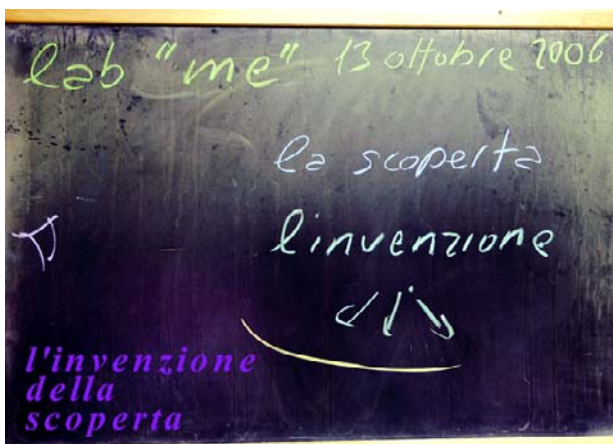 lab "me" 13 ottobre 2006
la scoperta
l'invenzione
l'invenzione
della
scoperta